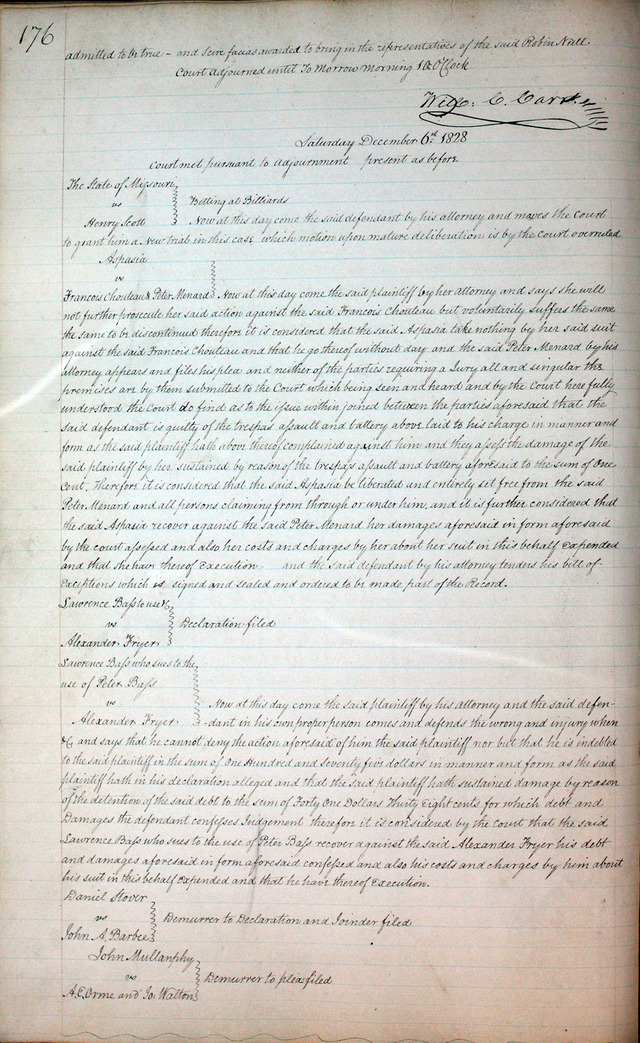 176
admitted to be true – and Scire facias awarded to bring in the representatives of the said Robin Nall
Court adjourned until To Morrow Morning 10 OClock
Will: C. Carr
Saturday December 6th 1828
Court met pursuant to adjournment present as before
The State of Missouri
vs Betting at Billiards
Henry Scott Now at this day come the said defendant by his attorney and moves the Court
to grant him a New trial in this case which motion upon mature deliberation is by the Court overruled
Aspasia
vs
Francois Chouteau & Peter Menard Now at this day come the said plaintiff by her attorney and says she will
not further prosecute her said action against the said Francois Chouteau but voluntarily suffers the same
the same to be discontinued therefore it is considered that the said Aspasia take nothing by her said suit
against the said Francois Chouteau and that he go thereof without day and the said Peter Menard by his
attorney appears and files his plea and neither of the parties requiring a Jury all and singular the
premises are by them submitted to the Court which being seen and heard and by the Court here fully
understood the Court do find as to the issue within joined between the parties aforesaid that the
said defendant is guilty of the trespass assault and battery above laid to his charge in manner and
form as the said plaintiff hath above thereof complained against him and they assess the damage of the
said plaintiff by her sustained by reason of the trespass assault and battery aforesaid to the sum of One
Cent. Therefore it is considered that the said Aspasia be liberated and entirely set free from the said
Peter Menard and all persons claiming from through or under him, and it is further considered that
the said Aspasia recover against the said Peter Menard her damages aforesaid in form aforesaid
by the court assessed and also her costs and charges by her about her suit in this behalf expended
and that she have thereof Execution and the said defendant by his attorney tenders his bill of
Exceptions which is signed and sealed and ordered to be made part of the Record.
Lawrence Bass to use &c
vs Declaration filed
Alexander Fryer
Lawrence Bass who sues to the
use of Peter Bass
vs Now at this day come the said plaintiff by his attorney and the said defen-
Alexander Fryer -dant in his own proper person comes and defends the wrong and injury when
&C and says that he cannot deny the action aforesaid of him the said plaintiff nor but that he is indebted
to the said plaintiff in the sum of One Hundred and seventy five dollars in manner and form as the said
plaintiff hath in his declaration alleged and that the said plaintiff hath sustained damage by reason
of the detention of the said debt to the sum of Forty One Dollars Thirty Eight cents for which debt and
Damages the defendant confesses Judgement therefore it is considered by the Court that the said
Lawrence Bass who sues to the use of Peter Bass recover against the said Alexander Fryer his debt
and damages aforesaid in form aforesaid confessed and also his costs and charges by him about
his suit in this behalf expended and that he have thereof Execution.
Daniel Stover
vs Demurrer to Declaration and Joinder filed
John A. Barbee
John Mullanphy
vs Demurrer to plea filed
A. E. Orme and Jo: Walton